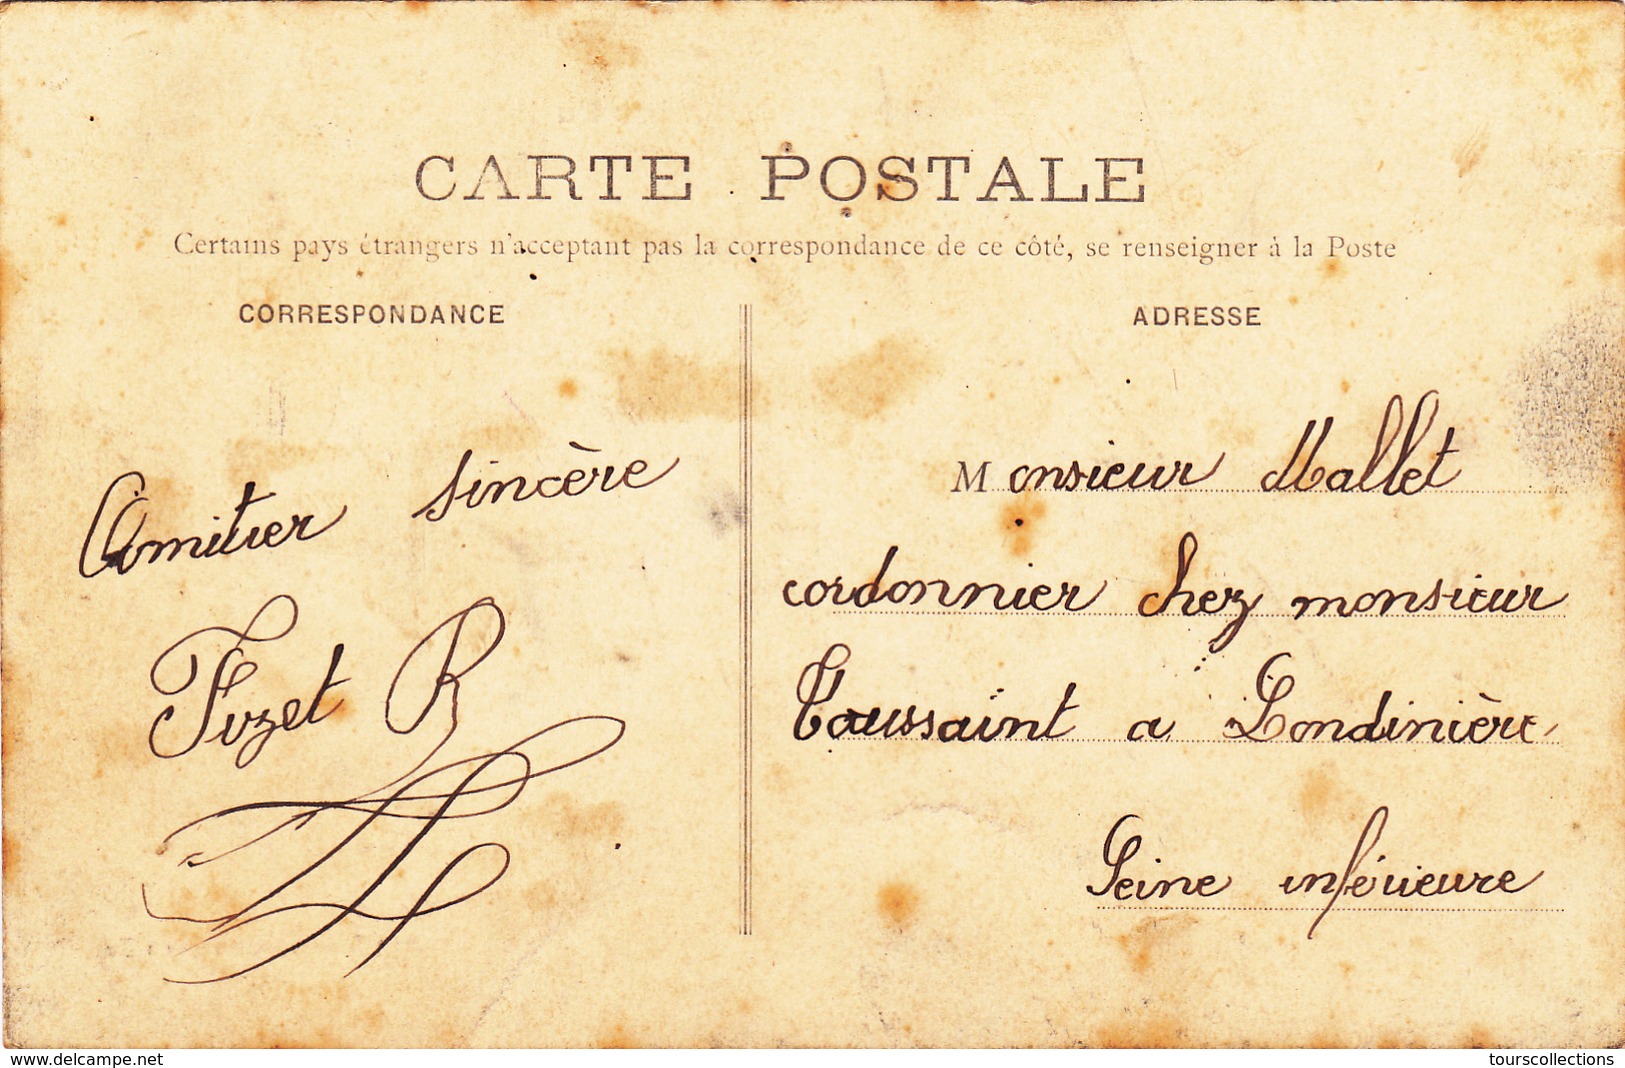 CARTE POSTALE
Certains pays étrangers n'acceptant pas la correspondance de ce côté, se renseigner à la Poste
CORRESPONDANCE
Amitier sincère
Fuzet R
ADRESSE
Monsieur Mallet
cordonnier chez monsieur
Toussaint a Londinière
Seine inférieure
www.delcampe.net
tourscollections